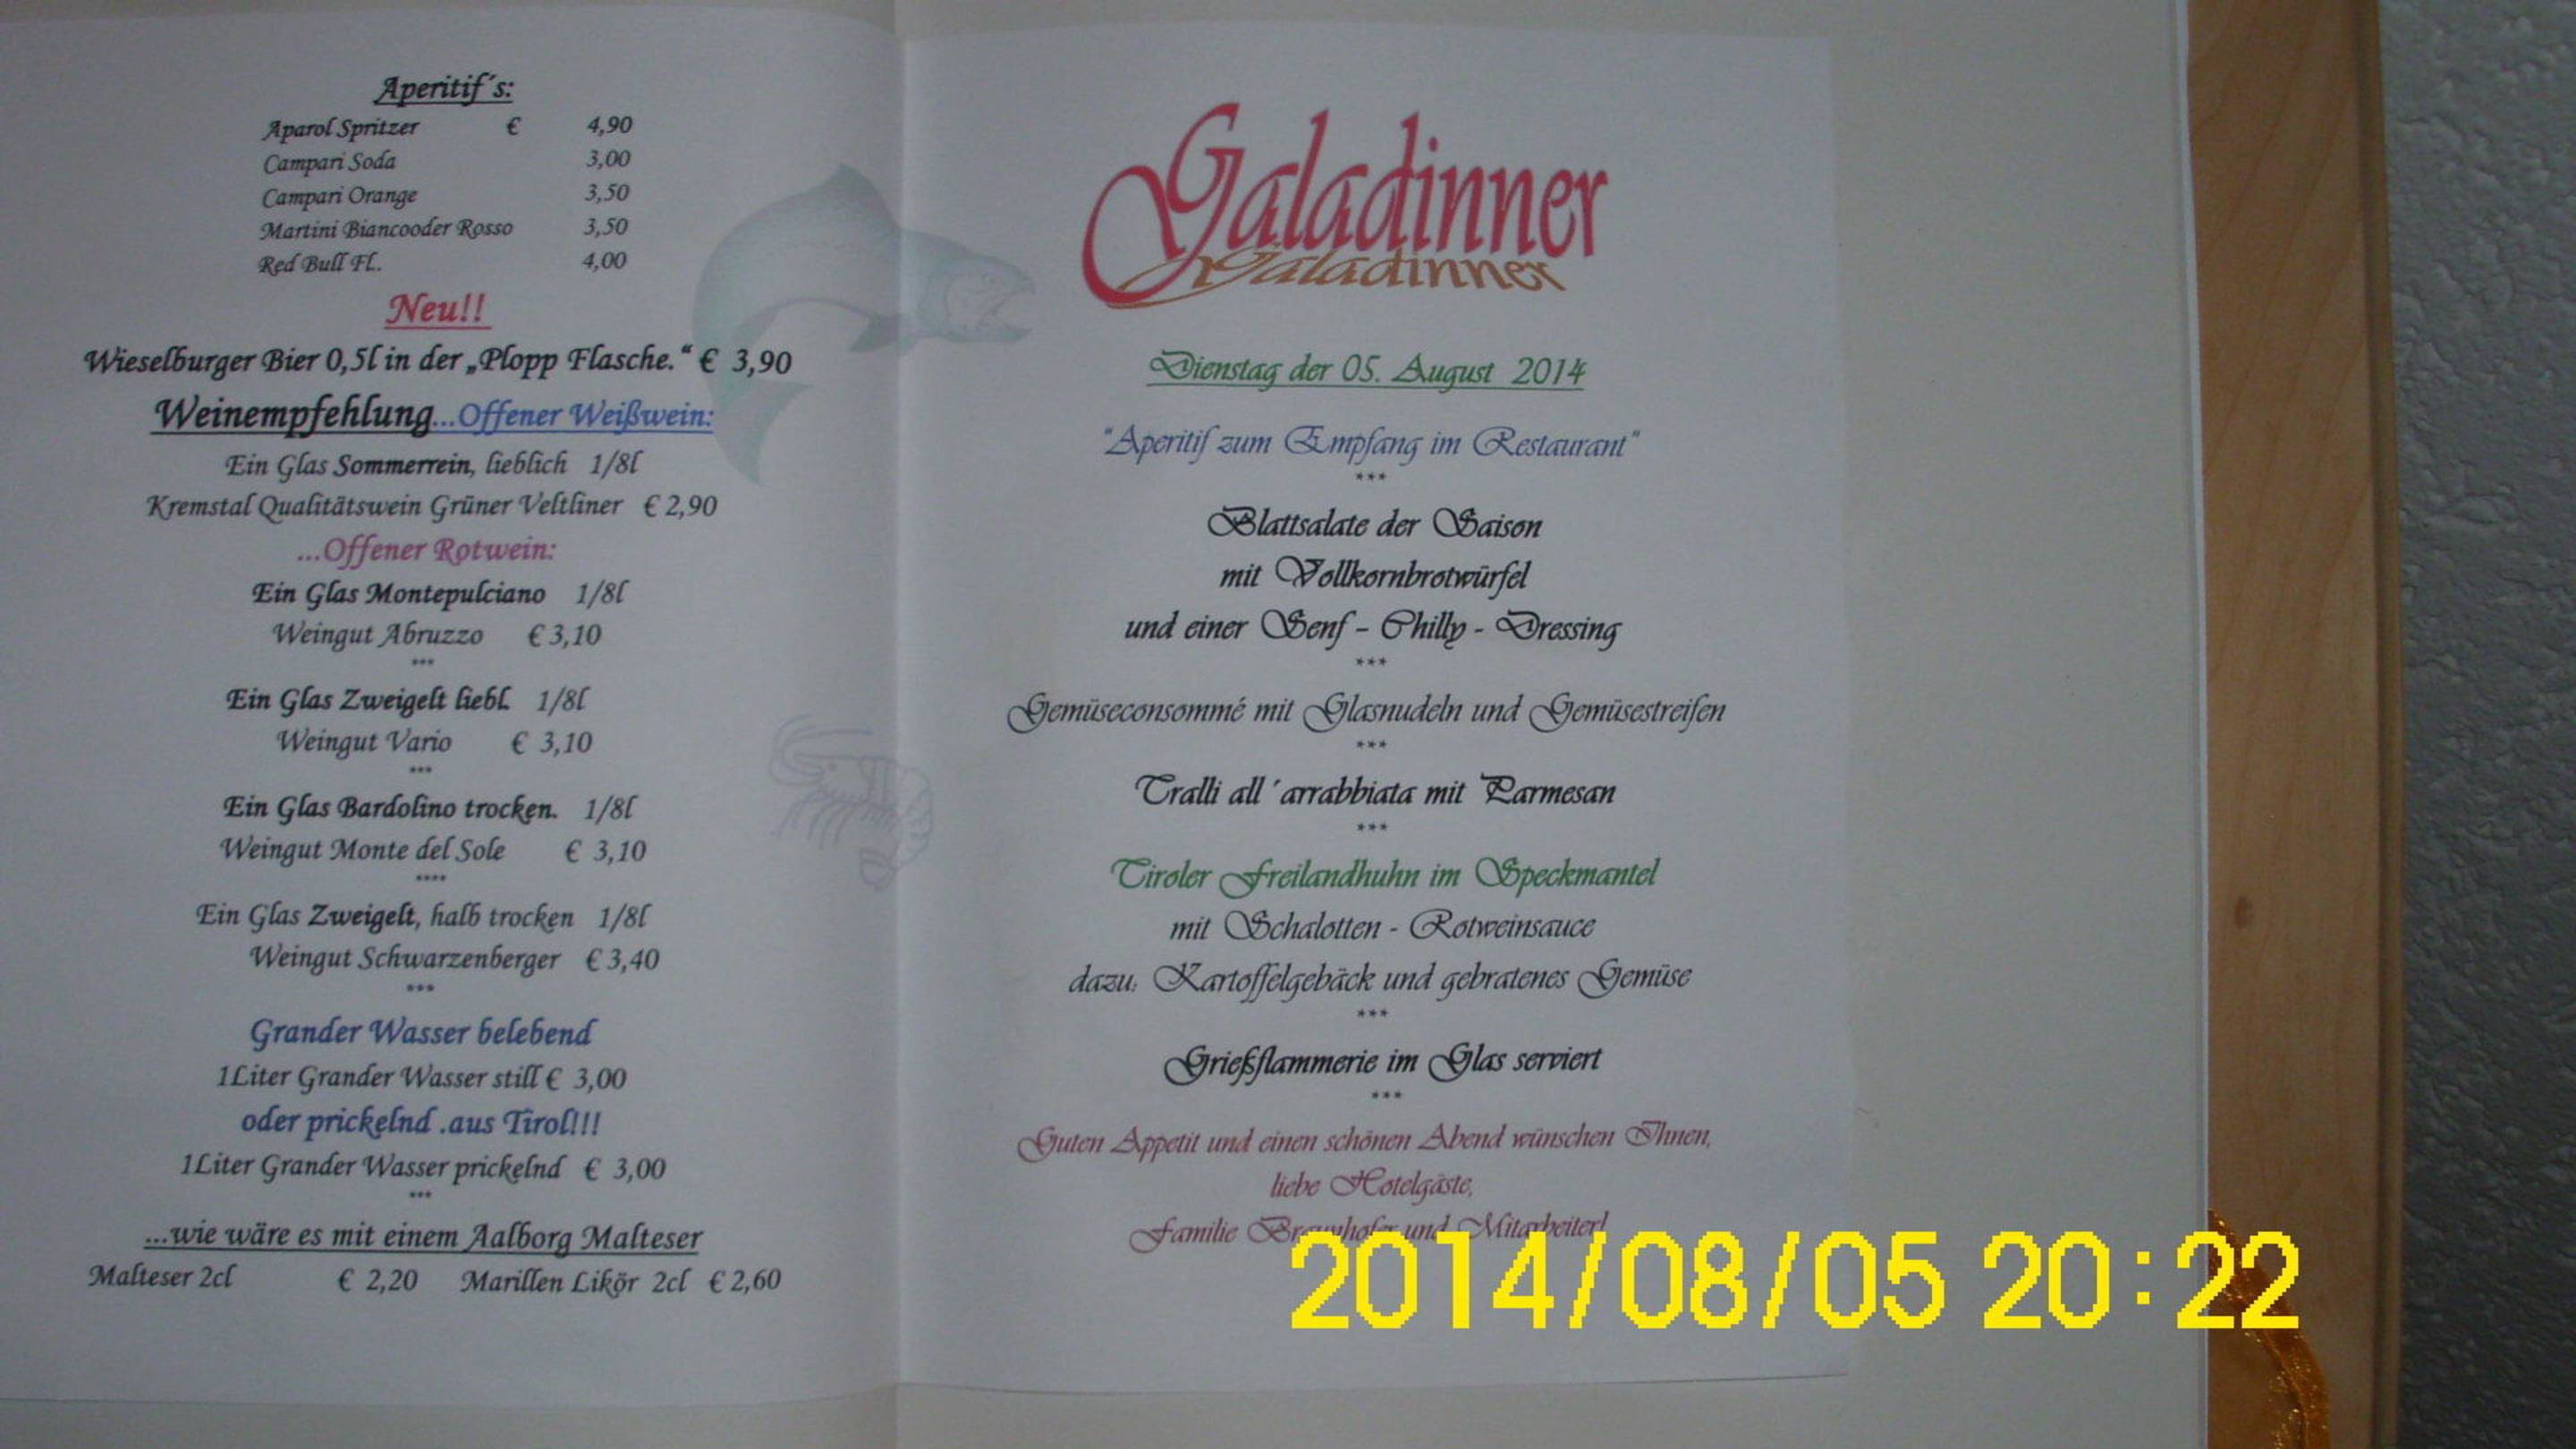 Aperitif´s:
Aparol Spritzer € 4,90
Campari Soda 3,00
Campari Orange 3,50
Martini Biancooder Rosso 3,50
Red Bull Fl. 4,00
Neu!!
Wieselburger Bier 0,5l in der „Plopp Flasche.“ € 3,90
Weinempfehlung...Offener Weißwein:
Ein Glas Sommerrein, lieblich 1/8l
Kremstal Qualitätswein Grüner Veltliner € 2,90
...Offener Rotwein:
Ein Glas Montepulciano 1/8l
Weingut Abruzzo € 3,10
***
Ein Glas Zweigelt liebl. 1/8l
Weingut Vario € 3,10
***
Ein Glas Bardolino trocken. 1/8l
Weingut Monte del Sole € 3,10
****
Ein Glas Zweigelt, halb trocken 1/8l
Weingut Schwarzenberger € 3,40
***
Grander Wasser belebend
1Liter Grander Wasser still € 3,00
oder prickelnd .aus Tirol!!!
1Liter Grander Wasser prickelnd € 3,00
***
...wie wäre es mit einem Aalborg Malteser
Malteser 2cl € 2,20 Marillen Likör 2cl € 2,60
Galadinner
Galadinner
Dienstag der 05. August 2014
"Aperitif zum Empfang im Restaurant"
***
Blattsalate der Saison
mit Vollkornbrotwürfel
und einer Senf - Chilly - Dressing
***
Gemüseconsommé mit Glasnudeln und Gemüsestreifen
***
Tralli all ´arrabbiata mit Parmesan
***
Tiroler Freilandhuhn im Speckmantel
mit Schalotten - Rotweinsauce
dazu: Kartoffelgebäck und gebratenes Gemüse
***
Grießflammerie im Glas serviert
***
Guten Appetit und einen schönen Abend wünschen Ihnen,
liebe Hotelgäste,
Familie Braunhofer und Mitarbeiter!
2014/08/05 20:22